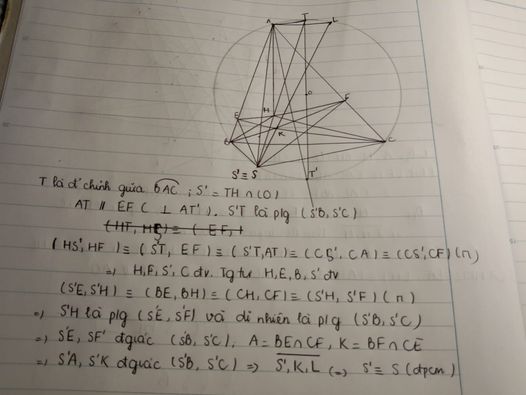 A T L
O
E F
H
K
B C
S' ≡ S T'
T là đ' chính giữa BAC ; S' = TH ∩ (O)
AT // EF ( ⊥ AT' ). S'T là plg (S'B, S'C)
(HS', HF) ≡ (S'T, EF) ≡ (S'T, AT) ≡ (CS', CA) ≡ (CS', CF) (π)
⇒ H, F, S', C đv. Tg tự H, E, B, S' đv
(S'E, S'H) ≡ (BE, BH) ≡ (CH, CF) ≡ (S'H, S'F) (π)
⇒ S'H là plg (S'E, S'F) và dĩ nhiên là plg (S'B, S'C)
⇒ S'E, SF' đgiác (S'B, S'C), A = BE ∩ CF, K = BF ∩ CE
⇒ S'A, S'K đgiác (S'B, S'C) ⇒ S', K, L (⇒) S' ≡ S (đpcm)